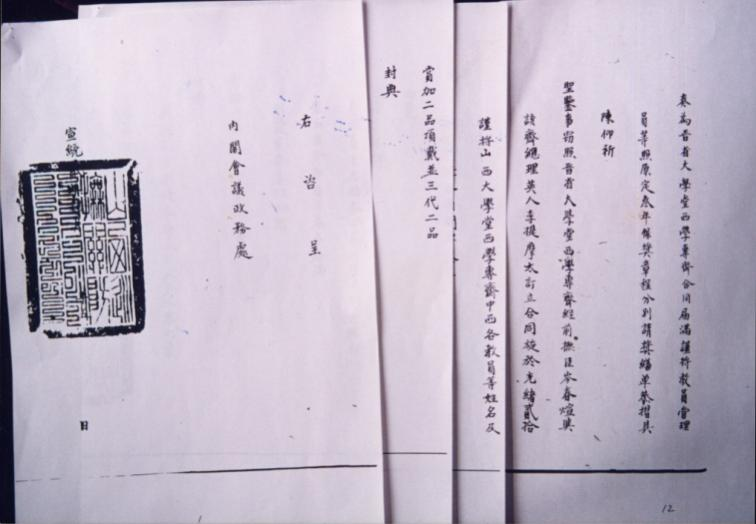 奏為晋省大學堂西學專齋合同屆滿謹將教員管理
員等照原定叁年保獎章程分別請獎繕单恭摺具
陳仰祈
聖鑒事窃照晋省大學堂西學專齋經前撫臣岑春煊與
該齋總理英人李提摩太訂立合同旋於光緒貳拾
謹將山西大學堂西學專齋中西各教員等姓名及
賞加二品頂戴並三代二品
封典
右咨呈
內閣會議政務處
宣統
日
12
1